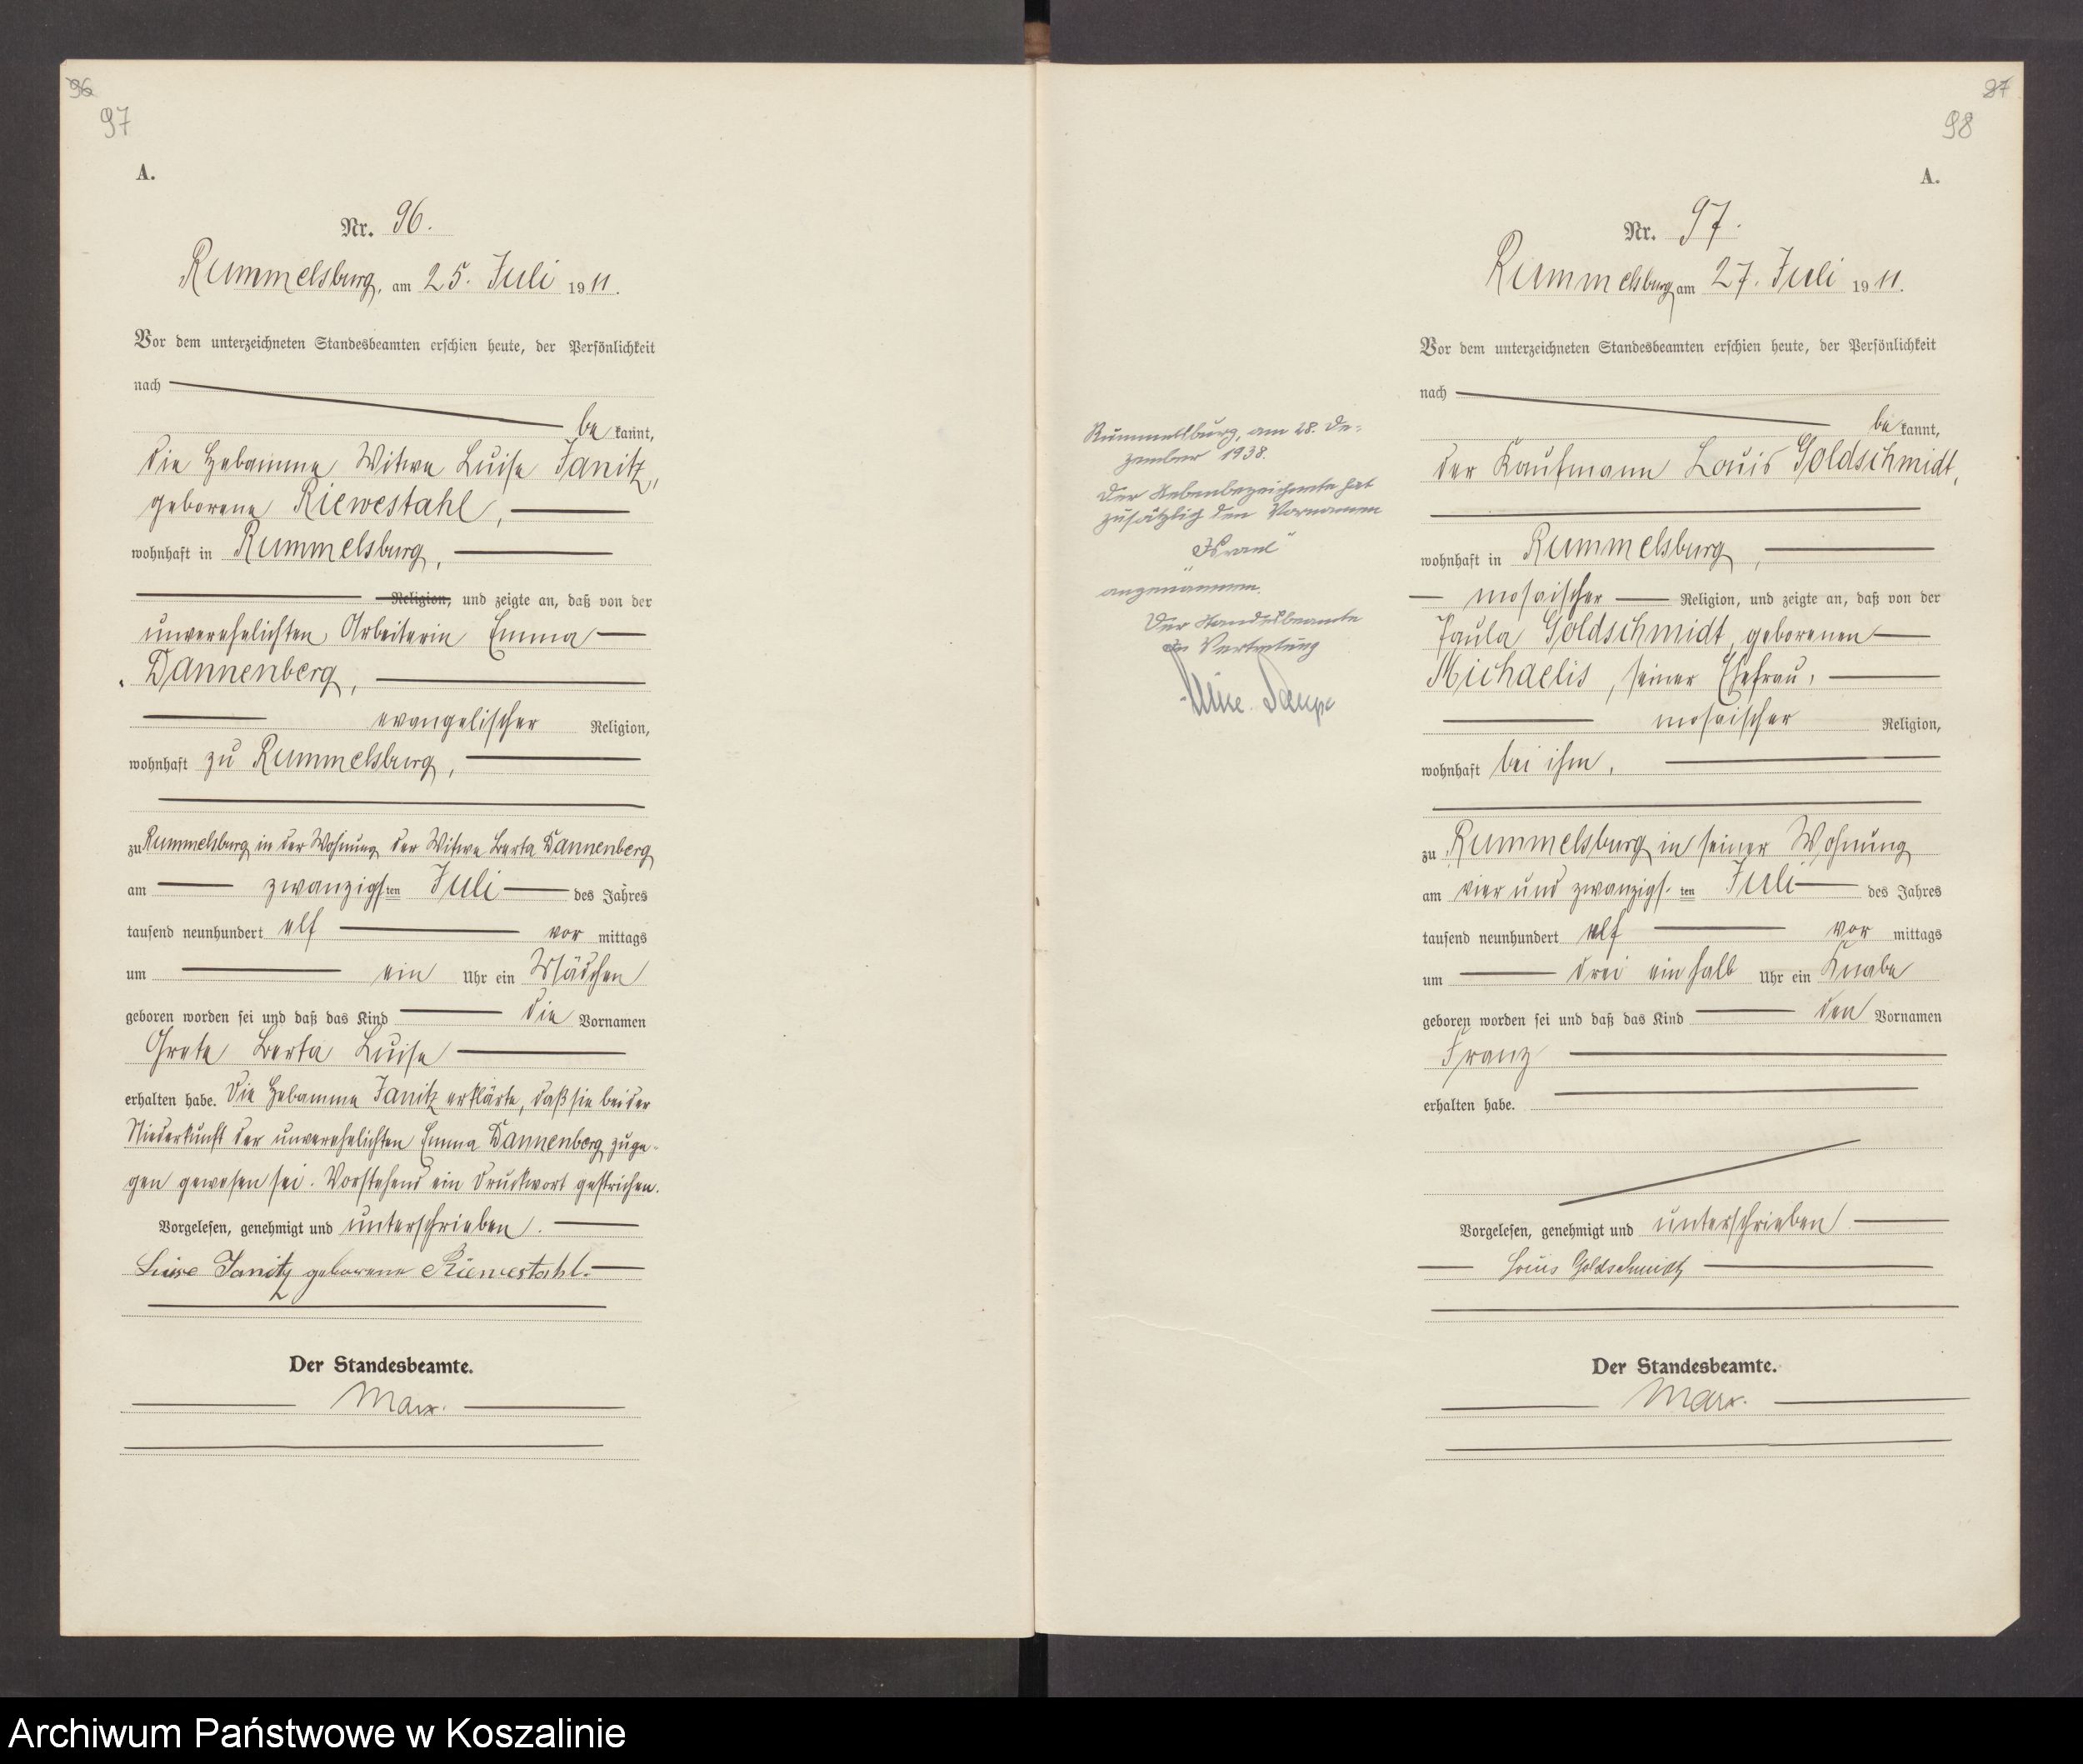 96
97
A.
Nr. 96.
Rummelsburg, am 25. Juli 1911.
Vor dem unterzeichneten Standesbeamten erschien heute, der Persönlichkeit
nach
bekannt,
die Hebamme Witwe Luise Janitz,
geborene Riewestahl,
wohnhaft in Rummelsburg,
Religion, und zeigte an, daß von der
unverehelichten Arbeiterin Emma
Dannenberg,
evangelischer Religion,
wohnhaft zu Rummelsburg,
zu Rummelsburg in der Wohnung der Witwe Berta Dannenberg
am zwanzigsten Juli des Jahres
tausend neunhundert elf vor mittags
um ein Uhr ein Mädchen
geboren worden sei und daß das Kind die Vornamen
Grete Berta Luise
erhalten habe. Die Hebamme Janitz erklärte, daß sie bei der
Niederkunft der unverehelichten Emma Dannenberg zuge-
gen gewesen sei. Vorstehend ein Druckwort gestrichen.
Vorgelesen, genehmigt und unterschrieben.
Luise Janitz geborene Riewestahl.
Der Standesbeamte.
Marx.
97
98
A.
Nr. 97.
Rummelsburg am 27. Juli 1911.
Vor dem unterzeichneten Standesbeamten erschien heute, der Persönlichkeit
nach
bekannt,
der Kaufmann Louis Goldschmidt,
wohnhaft in Rummelsburg,
mosaischer Religion, und zeigte an, daß von der
Paula Goldschmidt, geborenen
Michaelis, seiner Ehefrau,
mosaischer Religion,
wohnhaft bei ihm,
zu Rummelsburg in seiner Wohnung
am vier und zwanzigsten Juli des Jahres
tausend neunhundert elf vor mittags
um drei ein halb Uhr ein Knabe
geboren worden sei und daß das Kind den Vornamen
Franz
erhalten habe.
Vorgelesen, genehmigt und unterschrieben.
Louis Goldschmidt
Der Standesbeamte.
Marx.
Rummelsburg, am 28. De-
zember 1938.
Der Nebenbezeichnete hat
zusätzlich den Vornamen
„Israel"
angenommen.
Der Standesbeamte
In Vertretung
Archiwum Państwowe w Koszalinie